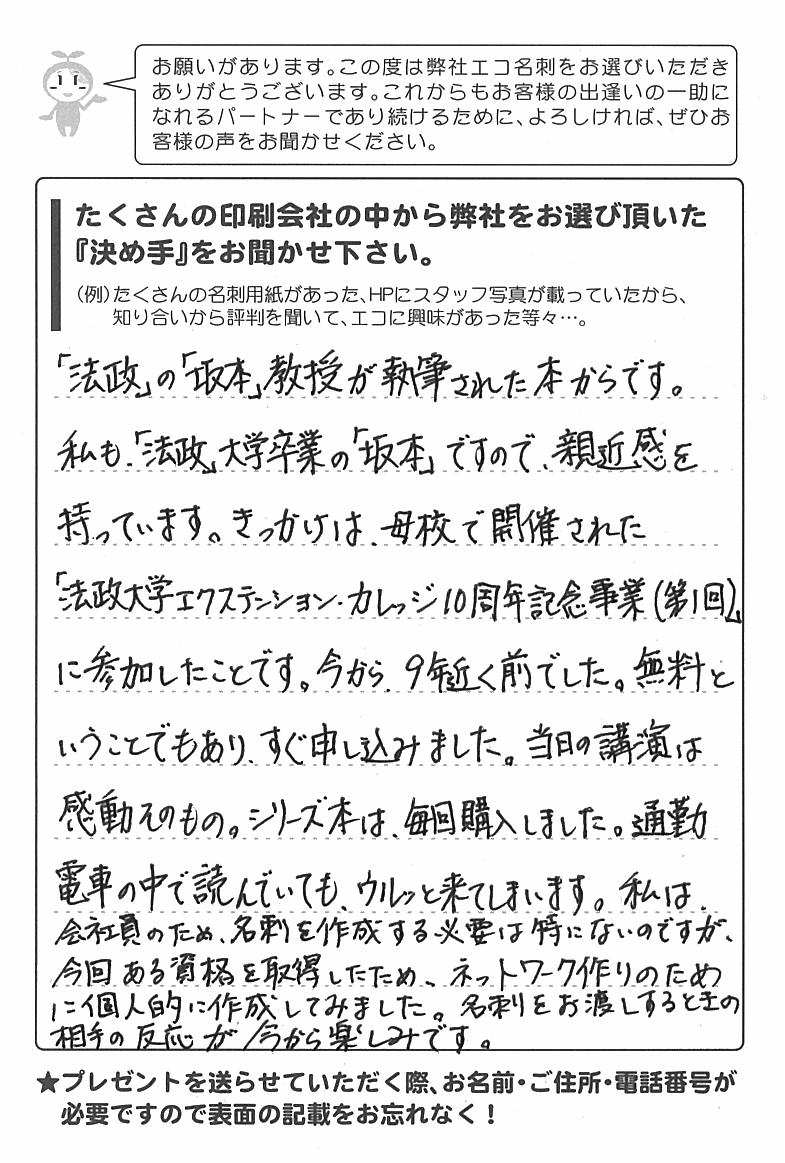 お願いがあります。この度は弊社エコ名刺をお選びいただき
ありがとうございます。これからもお客様の出逢いの一助に
なれるパートナーであり続けるために、よろしければ、ぜひお
客様の声をお聞かせください。
たくさんの印刷会社の中から弊社をお選び頂いた
『決め手』をお聞かせ下さい。
(例)たくさんの名刺用紙があった、HPにスタッフ写真が載っていたから、
知り合いから評判を聞いて、エコに興味があった等々…。
「法政」の「坂本」教授が執筆された本からです。
私も、「法政」大学卒業の「坂本」ですので、親近感を
持っています。きっかけは、母校で開催された
「法政大学エクステンション・カレッジ10周年記念事業(第1回)」
に参加したことです。今から、9年近く前でした。無料と
いうことでもあり、すぐ申し込みました。当日の講演は
感動そのもの。シリーズ本は、毎回購入しました。通勤
電車の中で読んでいても、ウルッと来てしまいます。私は、
会社員のため、名刺を作成する必要は特にないのですが、
今回ある資格を取得したため、ネットワーク作りのため
に個人的に作成してみました。名刺をお渡しするときの
相手の反応が今から楽しみです。
★プレゼントを送らせていただく際、お名前・ご住所・電話番号が
必要ですので表面の記載をお忘れなく!